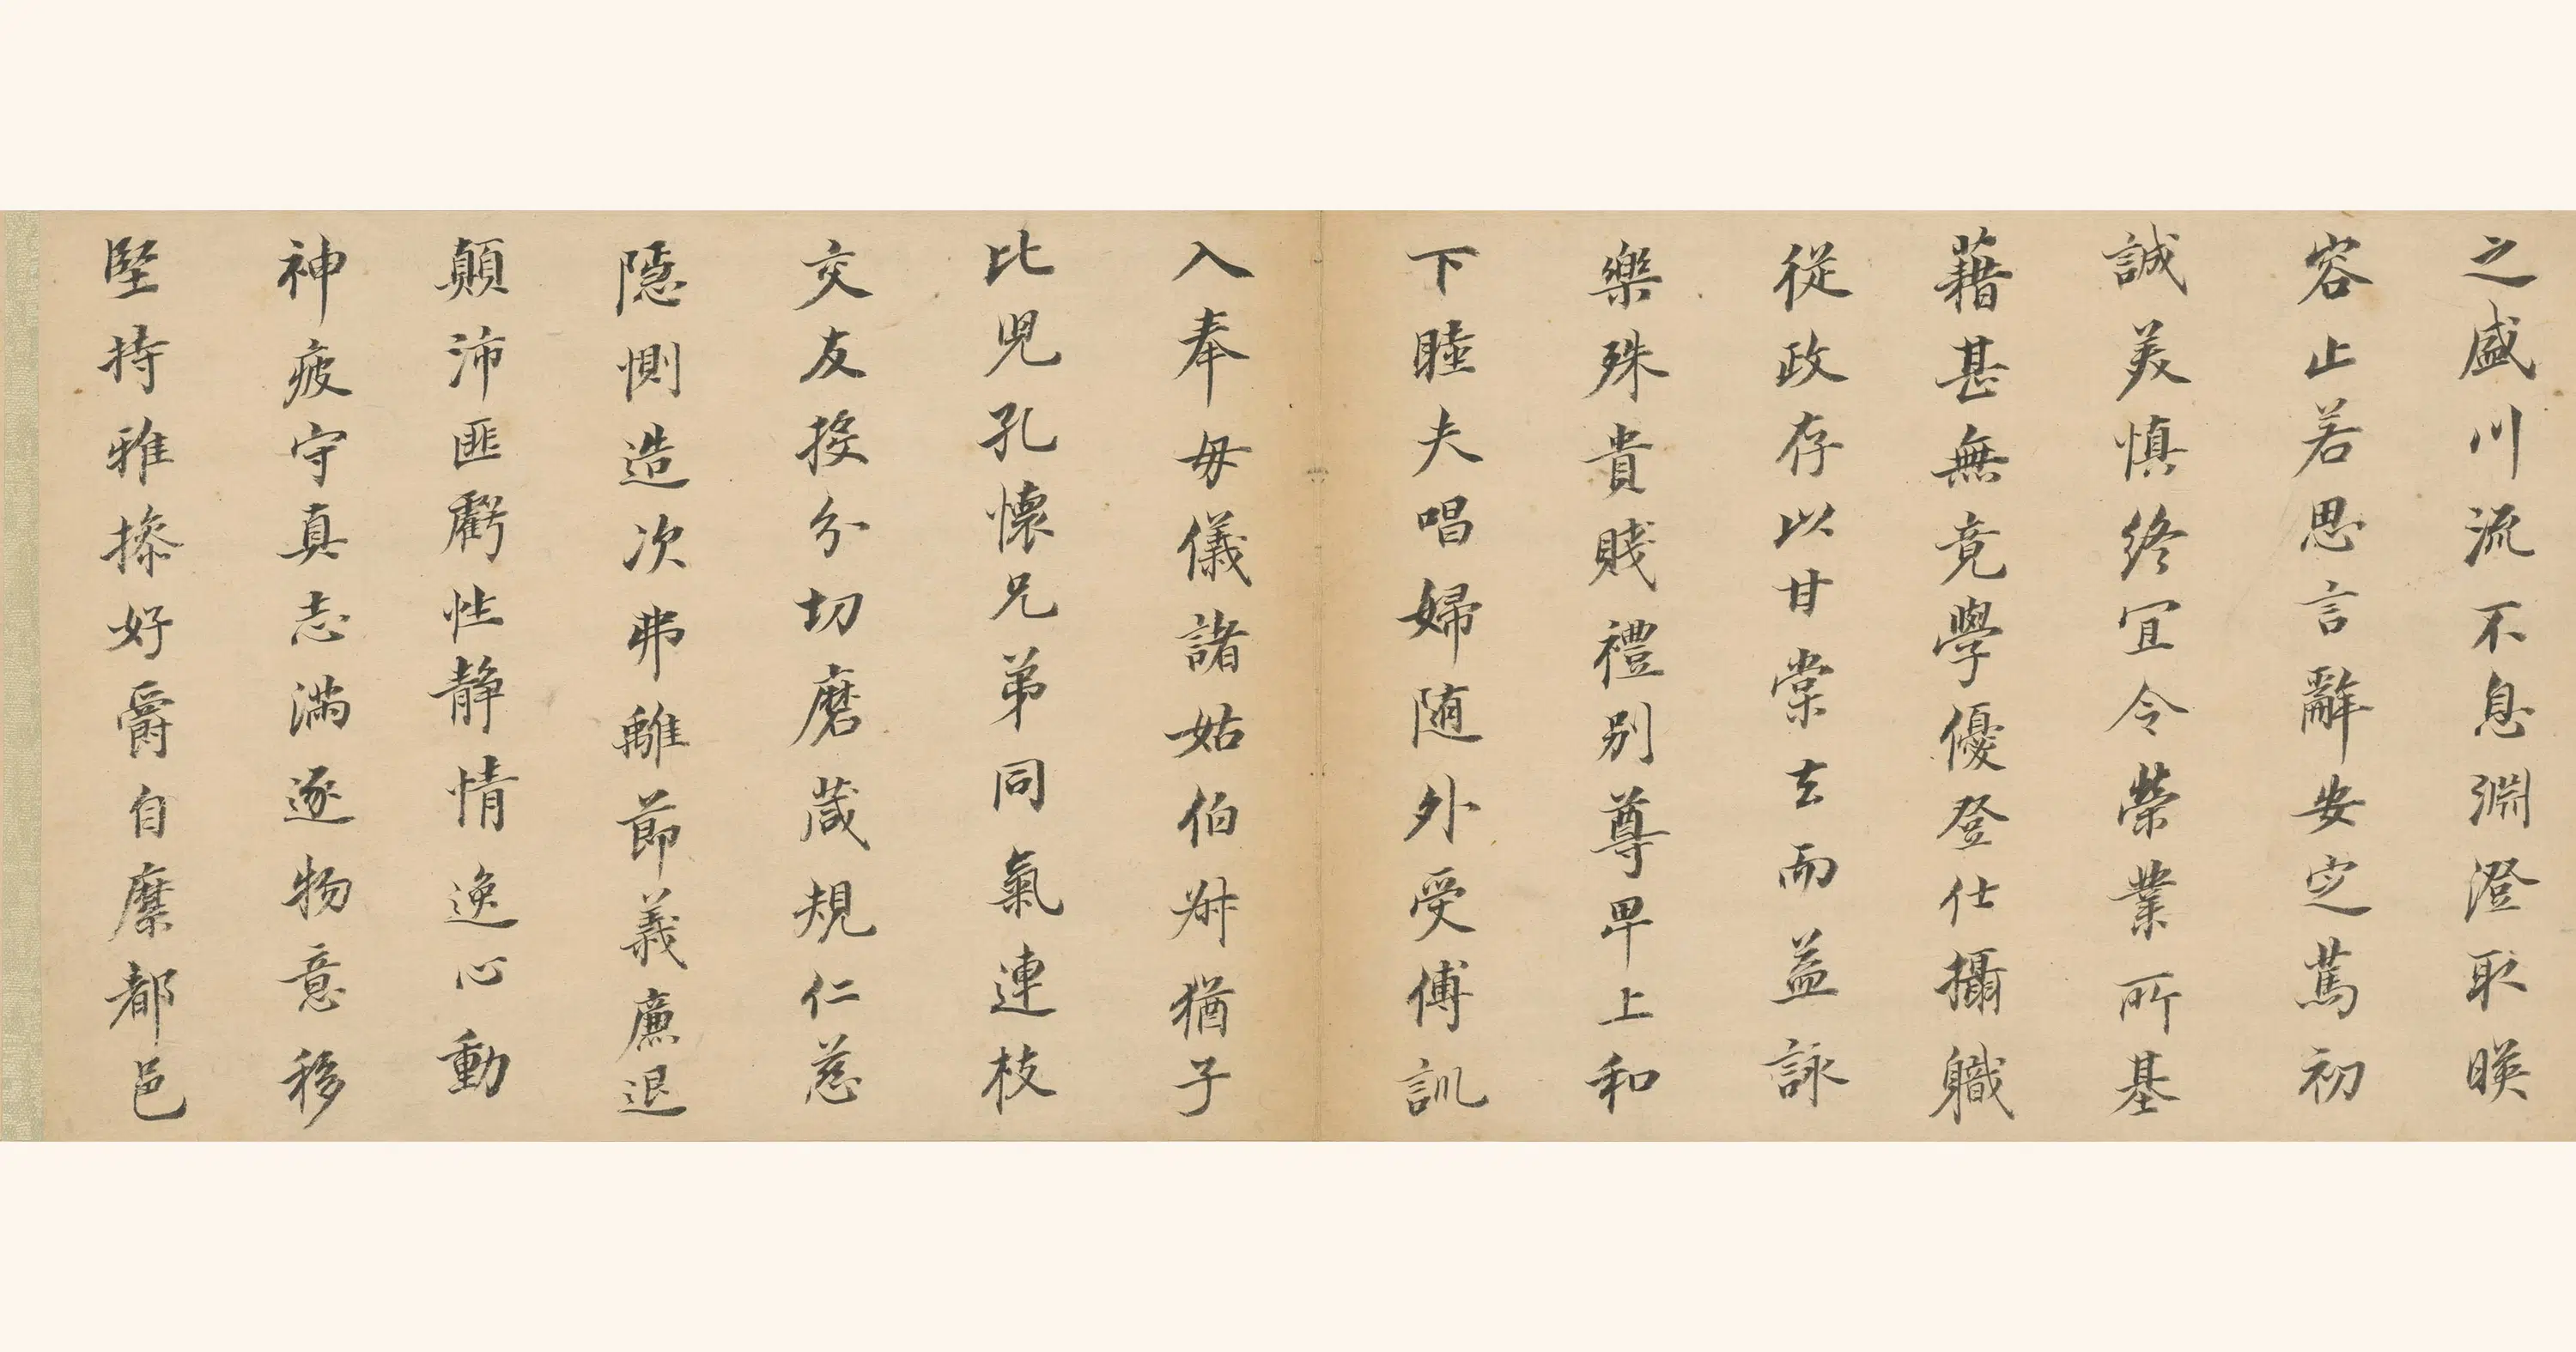 之盛川流不息淵澄取暎
容止若思言辭安定篤初
誠美慎終宜令榮業所基
藉甚無竟學優登仕攝職
從政存以甘棠去而益詠
樂殊貴賤禮別尊卑上和
下睦夫唱婦随外受傅訓
入奉母儀諸姑伯叔猶子
比兒孔懷兄弟同氣連枝
交友投分切磨葴規仁慈
隱惻造次弗離節義廉退
顛沛匪虧性静情逸心動
神疲守真志滿逐物意移
堅持雅操好爵自縻都邑